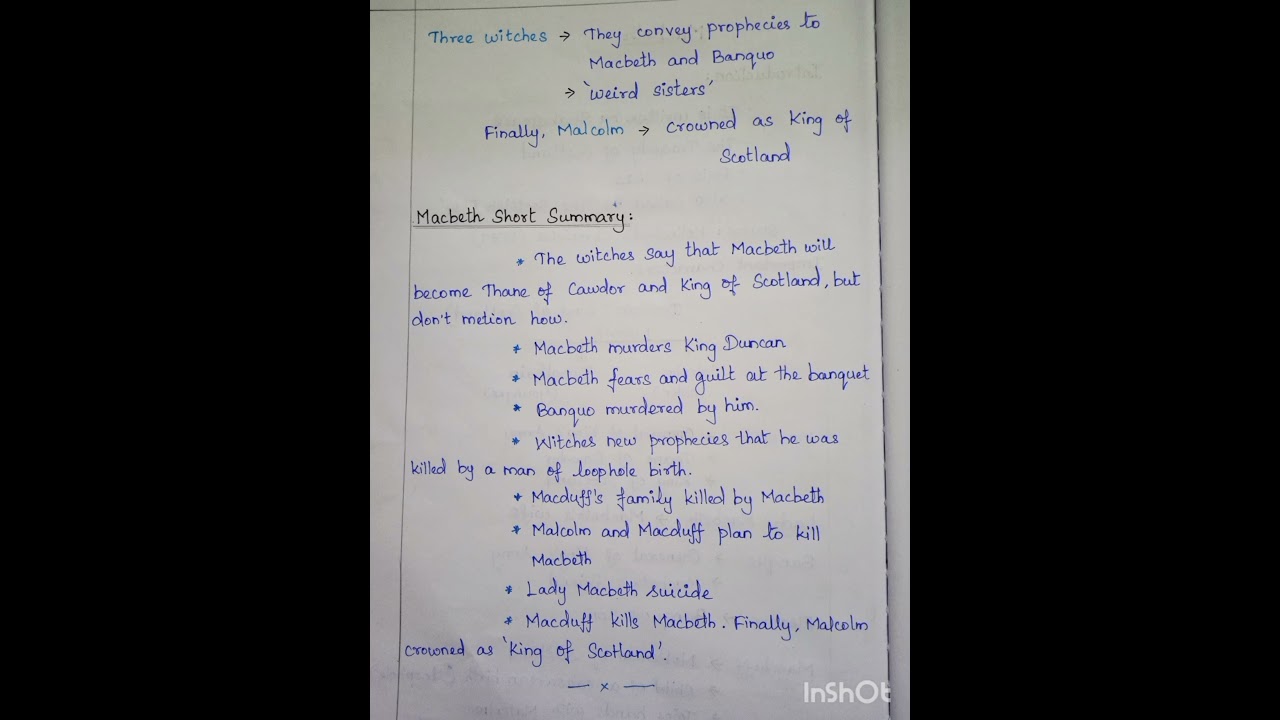 Three witches → They convey prophecies to
Macbeth and Banquo
→ 'weird sisters'
Finally, Malcolm → crowned as King of
Scotland
Macbeth Short Summary:
* The witches say that Macbeth will
become Thane of Cawdor and King of Scotland, but
don't metion how.
* Macbeth murders King Duncan
* Macbeth fears and guilt at the banquet
* Banquo murdered by him.
* Witches new prophecies that he was
killed by a man of loophole birth.
* Macduff's family killed by Macbeth
* Malcolm and Macduff plan to kill
Macbeth
* Lady Macbeth suicide
* Macduff kills Macbeth. Finally, Malcolm
crowned as 'King of Scotland'.
— x —
InShOt